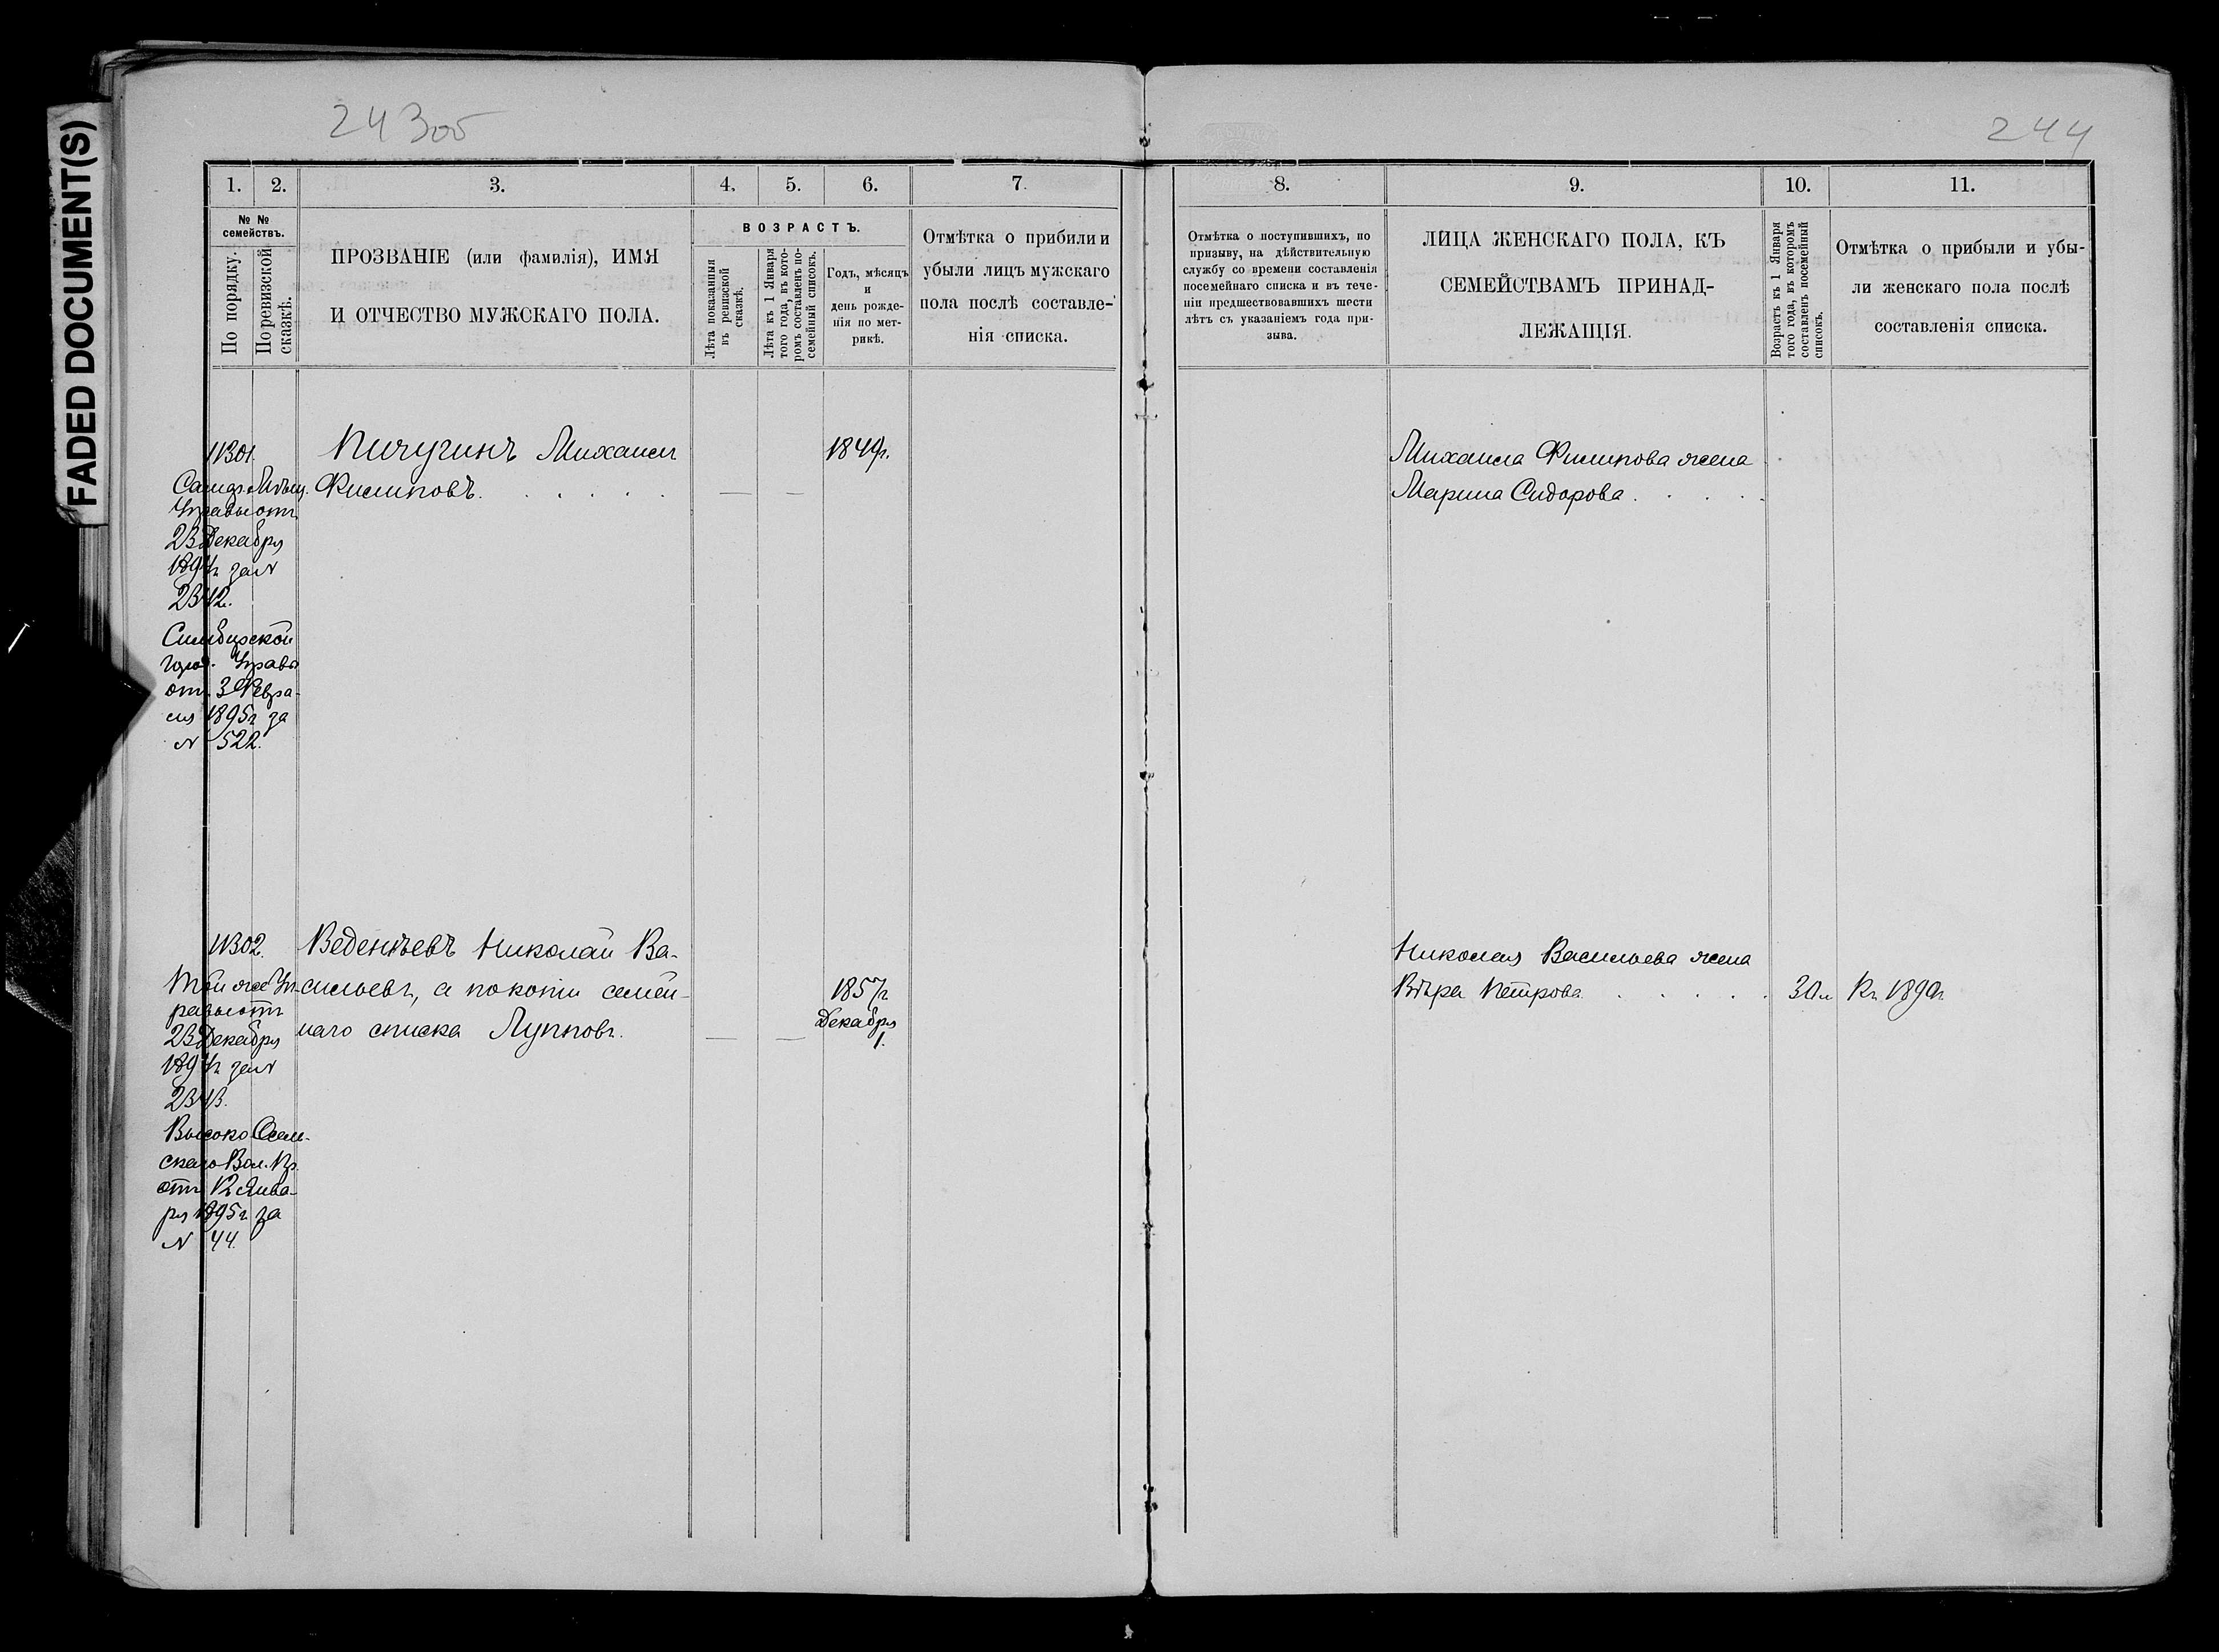 FADED DOCUMENT(S)
243об
1.
2.
3.
4.
5.
6.
7.
№ №
семействъ.
По порядку.
По ревизской
сказкѣ.
ПРОЗВАНІЕ (или фамилія), ИМЯ
И ОТЧЕСТВО МУЖСКАГО ПОЛА.
ВОЗРАСТЪ.
Лѣта показанныя
въ ревизской
сказкѣ.
Лѣта къ 1 Января
того года, въ кото-
ромъ составленъ по-
семейный списокъ.
Годъ, мѣсяцъ
и
день рожде-
нія по мет-
рикѣ.
Отмѣтка о прибили и
убыли лицъ мужскаго
пола послѣ составле-
нія списка.
11301.
Управы отъ
23 Декабря
1894г за N
2342.
Симбирской
Город. Управы
отъ 3 Февра-
ля 1895г за
N 522.
Пичугинъ Михаилъ
Филиповъ. . . . . .
— —
1849г.
11302.
Той же Уп-
равы отъ
23 Декабря
1894г за N
2343.
скаго Вол. Пр.
отъ 12 Янва-
ря 1895г за
N 44.
Веденѣевъ Николай Ва-
сильевъ, а по копіи семей-
наго списка Лупповъ.
— —
1857г
Декабря
1.
244
8.
9.
10.
11.
Отмѣтка о поступившихъ, по
призыву, на дѣйствительную
службу со времени составленія
посемейнаго списка и въ тече-
ніи предшествовавшихъ шести
лѣтъ съ указаніемъ года при-
зыва.
ЛИЦА ЖЕНСКАГО ПОЛА, КЪ
СЕМЕЙСТВАМЪ ПРИНАД-
ЛЕЖАЩІЯ.
Возрастъ къ 1 Января
того года, въ которомъ
составленъ посемейный
списокъ.
Отмѣтка о прибыли и убы-
ли женскаго пола послѣ
составленія списка.
Михаила Филипова жена
Марина Сидорова . . . . .
Николая Васильева жена
Вѣра Петрова . . . . .
30 л
Къ 1890г